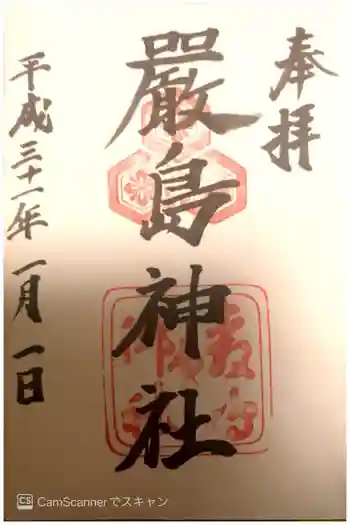 奉拝
嚴島神社
平成三十一年一月一日
CS CamScannerでスキャン